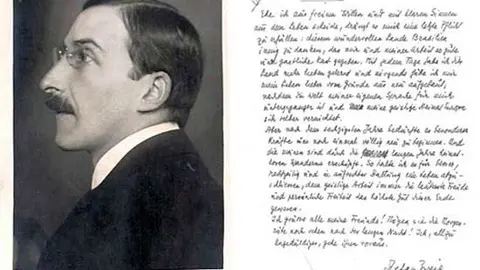 Ehe ich aus freiem Willen und mit klaren Sinnen
aus dem Leben scheide, drängt es mich eine letzte Pflicht
zu erfüllen: diesem wundervollen Lande Brasilien
innig zu danken, das mir und meiner Arbeit so gute
und gastliche Rast gegeben. Mit jedem Tage habe ich dies
Land mehr lieben gelernt und nirgends hätte ich mir
mein Leben lieber vom Grunde aus neu aufgebaut,
nachdem die Welt meiner eigenen Sprache für mich
untergegangen ist und meine geistige Heimat Europa
sich selber vernichtet.
Aber nach dem sechzigsten Jahre bedürfte es besonderer
Kräfte um noch einmal völlig neu zu beginnen. Und
die meinen sind durch die langen Jahre heimat-
losen Wanderns erschöpft. So halte ich es für besser,
rechtzeitig und in aufrechter Haltung ein Leben abzu-
schliessen, dem geistige Arbeit immer die lauterste Freude
und persönliche Freiheit das höchste Gut dieser Erde
gewesen.
Ich grüsse alle meine Freunde! Mögen sie die Morgen-
röte noch sehen nach der langen Nacht! Ich, allzu
Ungeduldiger, gehe ihnen voraus.
Stefan Zweig